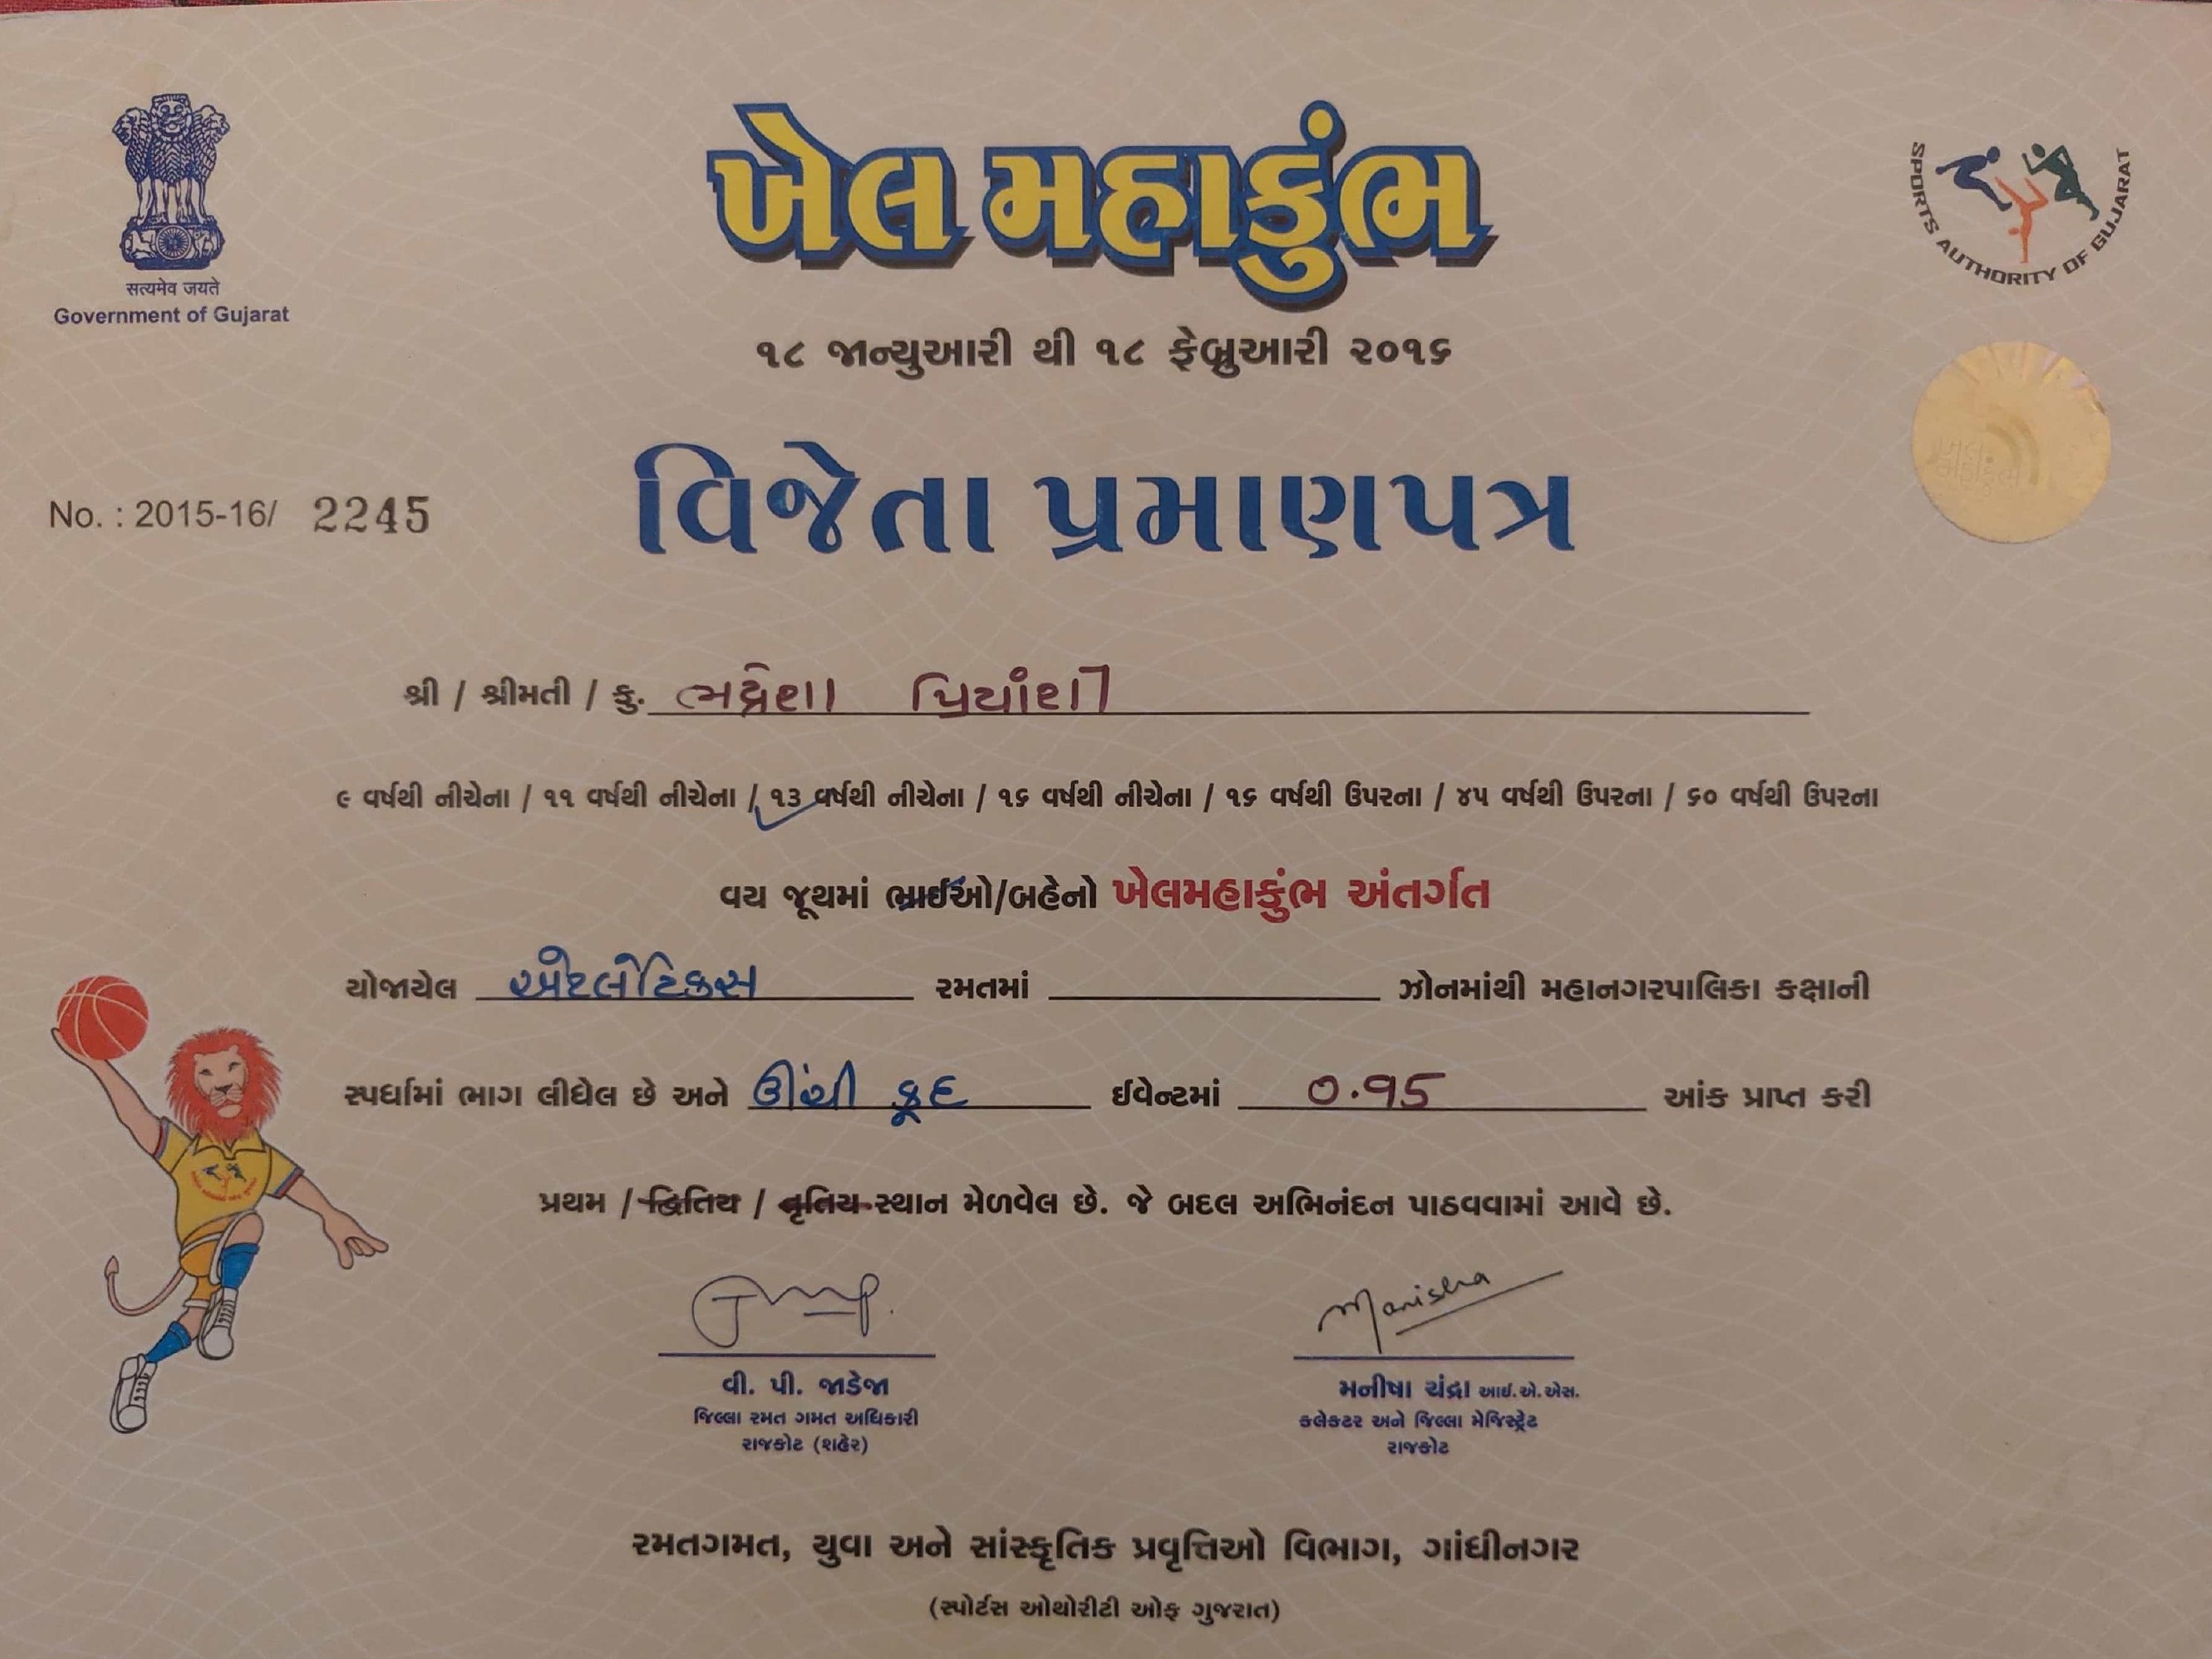 सत्यमेव जयते
Government of Gujarat
ખેલ મહાકુંભ
SPORTS AUTHORITY OF GUJARAT
૧૮ જાન્યુઆરી થી ૧૮ ફેબ્રુઆરી ૨૦૧૬
No. : 2015-16/ 2245
વિજેતા પ્રમાણપત્ર
શ્રી / શ્રીમતી / કુ. ભદ્રેશા પ્રિયાંશી
૯ વર્ષથી નીચેના / ૧૧ વર્ષથી નીચેના / ૧૩ વર્ષથી નીચેના / ૧૬ વર્ષથી નીચેના / ૧૬ વર્ષથી ઉપરના / ૪૫ વર્ષથી ઉપરના / ૬૦ વર્ષથી ઉપરના
વય જૂથમાં ભાઈઓ/બહેનો ખેલમહાકુંભ અંતર્ગત
યોજાયેલ એટલેટિકસ રમતમાં ઝોનમાંથી મહાનગરપાલિકા કક્ષાની
સ્પર્ધામાં ભાગ લીધેલ છે અને ઊંચી કૂદ ઈવેન્ટમાં ૦.૯૫ આંક પ્રાપ્ત કરી
પ્રથમ / દ્વિતિય / તૃતિય સ્થાન મેળવેલ છે. જે બદલ અભિનંદન પાઠવવામાં આવે છે.
Manisha
વી. પી. જાડેજા
જિલ્લા રમત ગમત અધિકારી
રાજકોટ (શહેર)
મનીષા ચંદ્રા આઈ.એ.એસ.
કલેકટર અને જિલ્લા મેજિસ્ટ્રેટ
રાજકોટ
રમતગમત, યુવા અને સાંસ્કૃતિક પ્રવૃત્તિઓ વિભાગ, ગાંધીનગર
(સ્પોર્ટસ ઓથોરીટી ઓફ ગુજરાત)